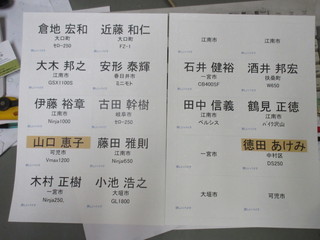 倉地 宏和
大口町
ゼロ-250
近藤 和仁
大口町
FZ-1
大木 邦之
江南市
GSX1100S
安形 泰輝
春日井市
ミニモト
伊藤 裕章
江南市
Ninja1000
古田 幹樹
岐阜市
ゼロ-250
山口 恵子
可児市
Vmax1200
藤田 雅則
江南市
Ninja650
木村 正樹
一宮市
Ninja250
小池 浩之
大垣市
GL1800
江南市
江南市
石井 健裕
一宮市
CB400SF
酒井 邦宏
扶桑町
W650
田中 信義
江南市
ベルシス
鶴見 正徳
江南市
バイク沢山
一宮市
徳田 あけみ
中村区
DS250
大垣市
可児市